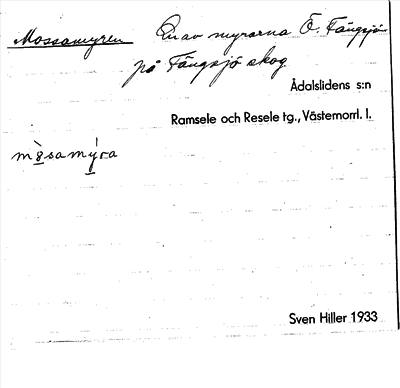 Mossamyren En av myrorna Ö. Fängsjö
på Fängsjö skog
Ådalslidens s:n
Ramsele och Resele tg., Västernorrl. l.
Sven Hiller 1933